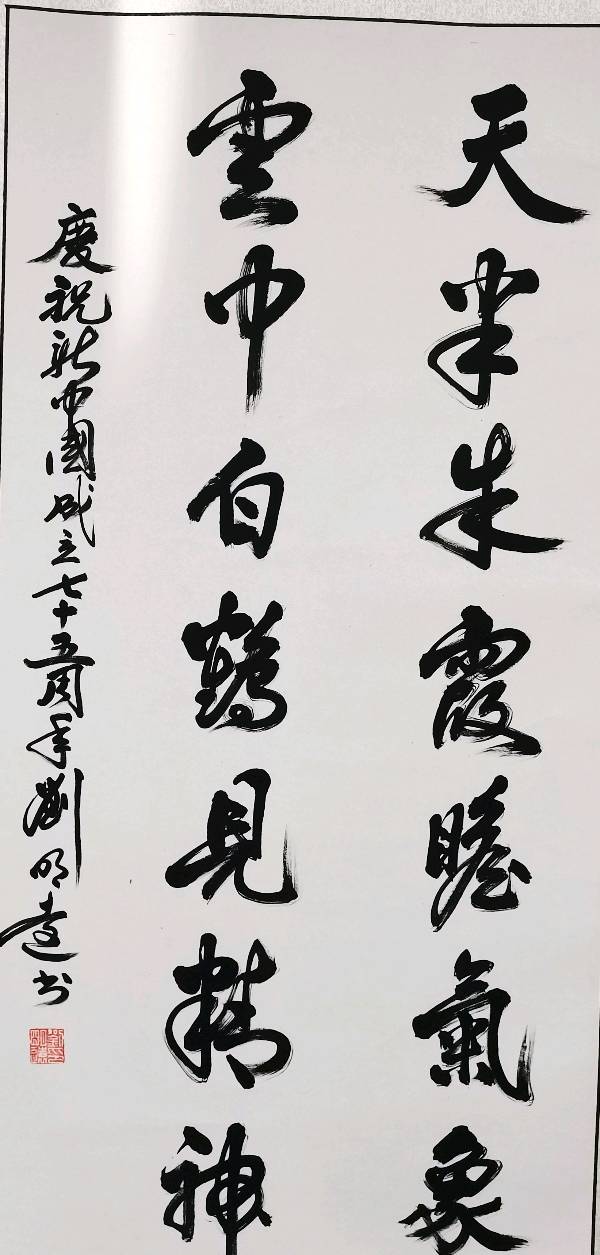 天半朱霞瞻氣象
雲中白鶴見精神
慶祝新中國成立七十五周年劉明達書